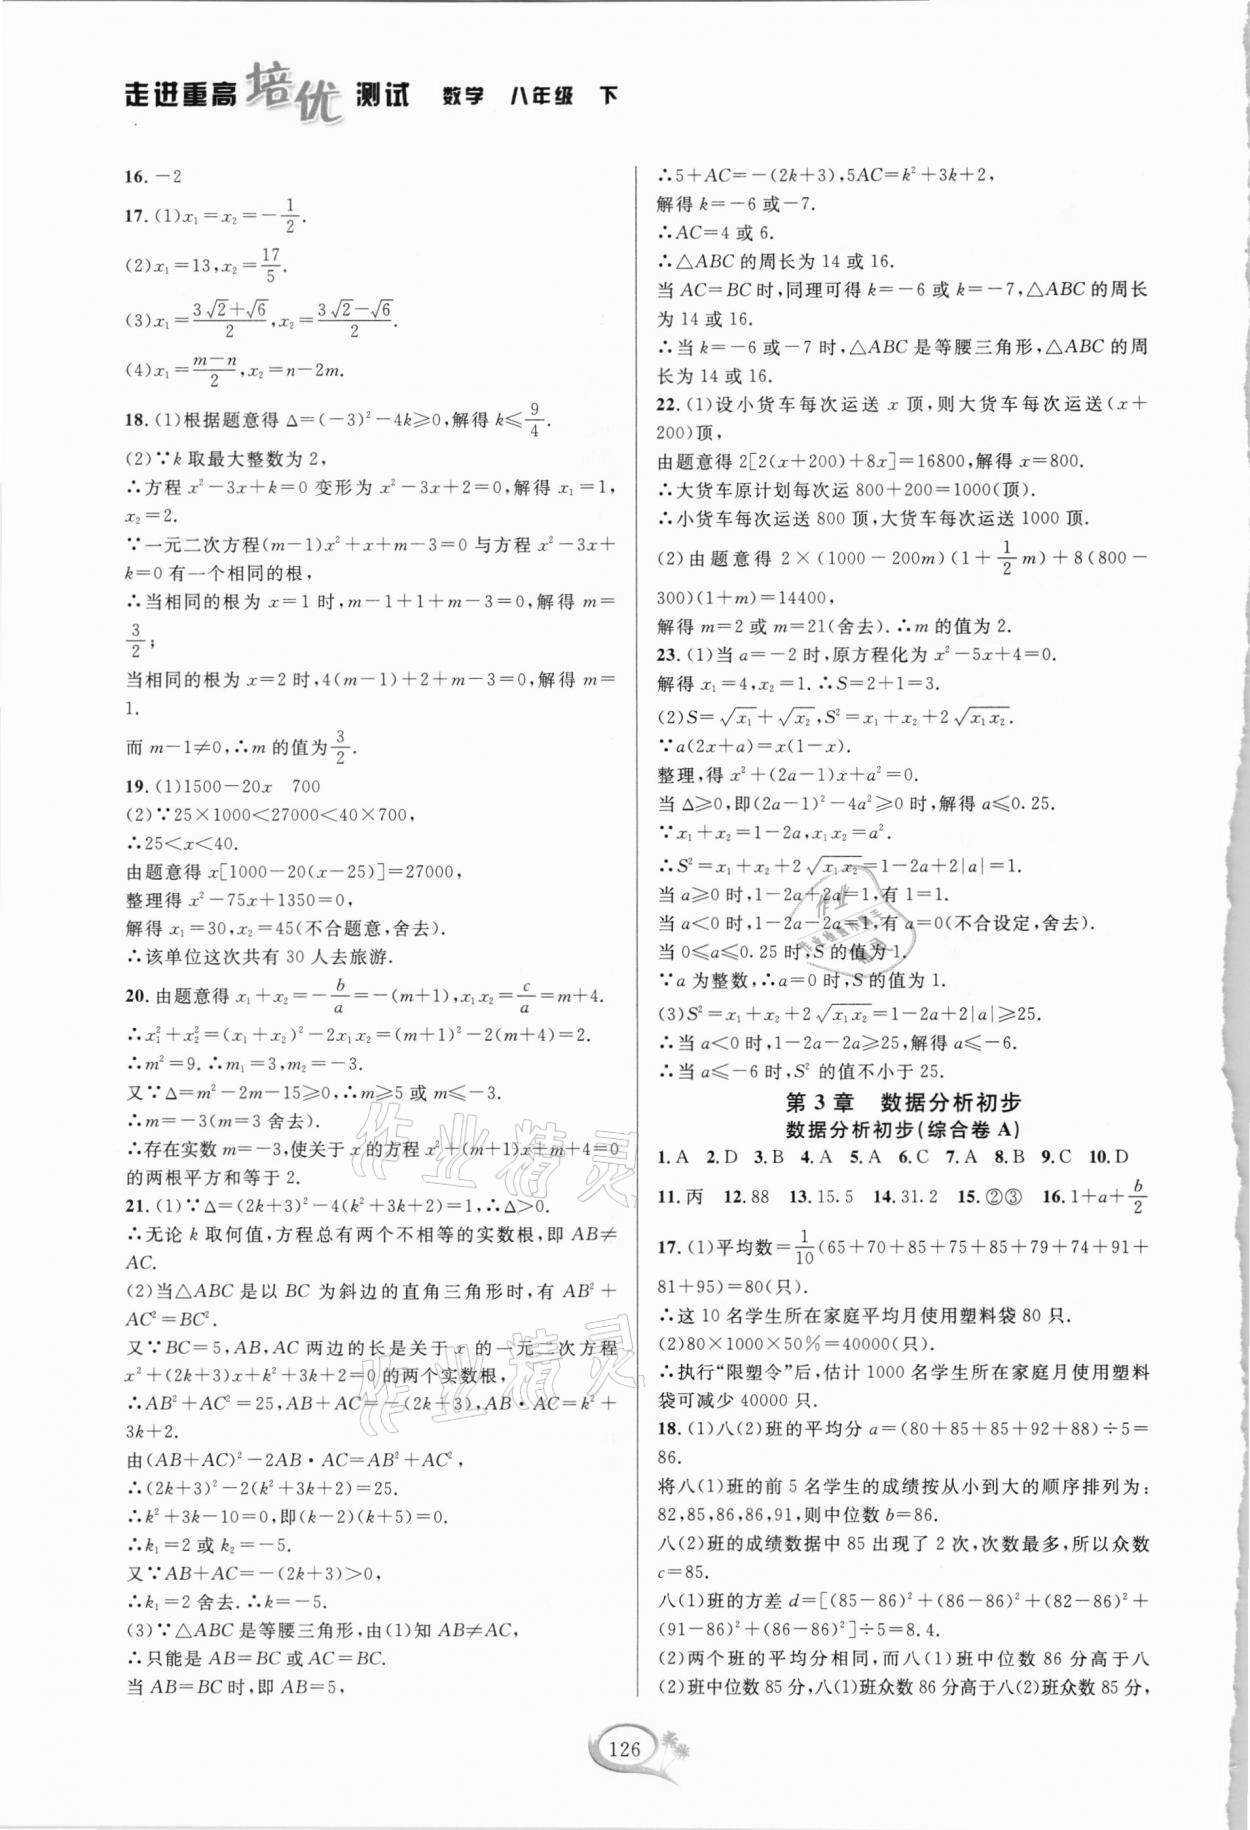 走进重高培优测试 数学 八年级 下
16. －2
17. (1)x₁＝x₂＝－1/2.
(2)x₁＝13,x₂＝17/5.
(3)x₁＝(3√2＋√6)/2,x₂＝(3√2－√6)/2.
(4)x₁＝(m－n)/2,x₂＝n－2m.
18. (1)根据题意得 Δ＝(－3)²－4k≥0,解得 k≤9/4.
(2)∵k 取最大整数为 2,
∴方程 x²－3x＋k＝0 变形为 x²－3x＋2＝0,解得 x₁＝1,
x₂＝2.
∵一元二次方程(m－1)x²＋x＋m－3＝0 与方程 x²－3x＋
k＝0 有一个相同的根,
∴当相同的根为 x＝1 时,m－1＋1＋m－3＝0,解得 m＝
3/2;
当相同的根为 x＝2 时,4(m－1)＋2＋m－3＝0,解得 m＝
1.
而 m－1≠0,∴m 的值为3/2.
19. (1)1500－20x 700
(2)∵25×1000＜27000＜40×700,
∴25＜x＜40.
由题意得 x[1000－20(x－25)]＝27000,
整理得 x²－75x＋1350＝0,
解得 x₁＝30,x₂＝45(不合题意,舍去).
∴该单位这次共有 30 人去旅游.
20. 由题意得 x₁＋x₂＝－b/a＝－(m＋1),x₁x₂＝c/a＝m＋4.
∴x₁²＋x₂²＝(x₁＋x₂)²－2x₁x₂＝(m＋1)²－2(m＋4)＝2.
∴m²＝9.∴m₁＝3,m₂＝－3.
又∵Δ＝m²－2m－15≥0,∴m≥5 或 m≤－3.
∴m＝－3(m＝3 舍去).
∴存在实数 m＝－3,使关于 x 的方程 x²＋(m＋1)x＋m＋4＝0
的两根平方和等于 2.
21. (1)∵Δ＝(2k＋3)²－4(k²＋3k＋2)＝1,∴Δ＞0.
∴无论 k 取何值,方程总有两个不相等的实数根,即 AB≠
AC.
(2)当△ABC 是以 BC 为斜边的直角三角形时,有 AB²＋
AC²＝BC².
又∵BC＝5,AB,AC 两边的长是关于 x 的一元二次方程
x²＋(2k＋3)x＋k²＋3k＋2＝0的两个实数根,
∴AB²＋AC²＝25,AB＋AC＝－(2k＋3),AB·AC＝k²＋
3k＋2.
由(AB＋AC)²－2AB·AC＝AB²＋AC²,
∴(2k＋3)²－2(k²＋3k＋2)＝25.
∴k²＋3k－10＝0,即(k－2)(k＋5)＝0.
∴k₁＝2 或 k₂＝－5.
又∵AB＋AC＝－(2k＋3)＞0,
∴k₁＝2 舍去.∴k＝－5.
(3)∵△ABC 是等腰三角形,由(1)知 AB≠AC,
∴只能是 AB＝BC 或AC＝BC.
当 AB＝BC 时,即 AB＝5,
∴5＋AC＝－(2k＋3),5AC＝k²＋3k＋2,
解得 k＝－6 或－7.
∴AC＝4 或 6.
∴△ABC 的周长为 14 或 16.
当 AC＝BC 时,同理可得 k＝－6 或 k＝－7,△ABC 的周长
为 14 或 16.
∴当 k＝－6 或－7 时,△ABC 是等腰三角形,△ABC 的周
长为 14 或 16.
22. (1)设小货车每次运送 x 顶,则大货车每次运送(x＋
200)顶,
由题意得 2[2(x＋200)＋8x]＝16800,解得 x＝800.
∴大货车原计划每次运 800＋200＝1000(顶).
∴小货车每次运送 800 顶,大货车每次运送 1000 顶.
(2)由题意得 2×(1000－200m)(1＋1/2m)＋8(800－
300)(1＋m)＝14400,
解得 m＝2 或 m＝21(舍去).∴m 的值为 2.
23. (1)当 a＝－2 时,原方程化为 x²－5x＋4＝0.
解得 x₁＝4,x₂＝1.∴S＝2＋1＝3.
(2)S＝√x₁＋√x₂,S²＝x₁＋x₂＋2√(x₁x₂).
∵a(2x＋a)＝x(1－x).
整理,得 x²＋(2a－1)x＋a²＝0.
当 Δ≥0,即(2a－1)²－4a²≥0 时,解得 a≤0.25.
∵x₁＋x₂＝1－2a,x₁x₂＝a².
∴S²＝x₁＋x₂＋2√(x₁x₂)＝1－2a＋2|a|＝1.
当 a≥0 时,1－2a＋2a＝1,有 1＝1.
当 a＜0 时,1－2a－2a＝1,有 a＝0(不合设定,舍去).
当 0≤a≤0.25 时,S 的值为 1.
∵a 为整数,∴a＝0 时,S 的值为 1.
(3)S²＝x₁＋x₂＋2√(x₁x₂)＝1－2a＋2|a|≥25.
∴当 a＜0 时,1－2a－2a≥25,解得 a≤－6.
∴当 a≤－6 时,S² 的值不小于 25.
第 3 章 数据分析初步
数据分析初步(综合卷 A)
1. A 2. D 3. B 4. A 5. A 6. C 7. A 8. B 9. C 10. D
11. 丙 12. 88 13. 15.5 14. 31.2 15. ②③ 16. 1＋a＋b/2
17. (1)平均数＝1/10(65＋70＋85＋75＋85＋79＋74＋91＋
81＋95)＝80(只).
∴这 10 名学生所在家庭平均月使用塑料袋 80 只.
(2)80×1000×50％＝40000(只).
∴执行“限塑令”后,估计 1000 名学生所在家庭月使用塑料
袋可减少 40000 只.
18. (1)八(2)班的平均分 a＝(80＋85＋85＋92＋88)÷5＝
86.
将八(1)班的前 5 名学生的成绩按从小到大的顺序排列为:
82,85,86,86,91,则中位数 b＝86.
八(2)班的成绩数据中 85 出现了 2 次,次数最多,所以众数
c＝85.
八(1)班的方差 d＝[(85－86)²＋(86－86)²＋(82－86)²＋
(91－86)²＋(86－86)²]÷5＝8.4.
(2)两个班的平均分相同,而八(1)班中位数 86 分高于八
(2)班中位数85分,八(1)班众数86分高于八(2)班众数85分,
126
作业精灵
作业精灵